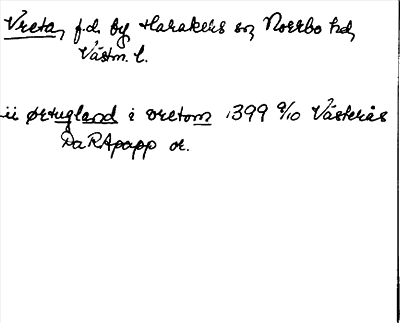 Vreta, f.d. by Harakers sn, Norrbo hd,
Västm. l.
ii ørtugland i vretom 1399 9/10 Västerås
DaRApapp or.